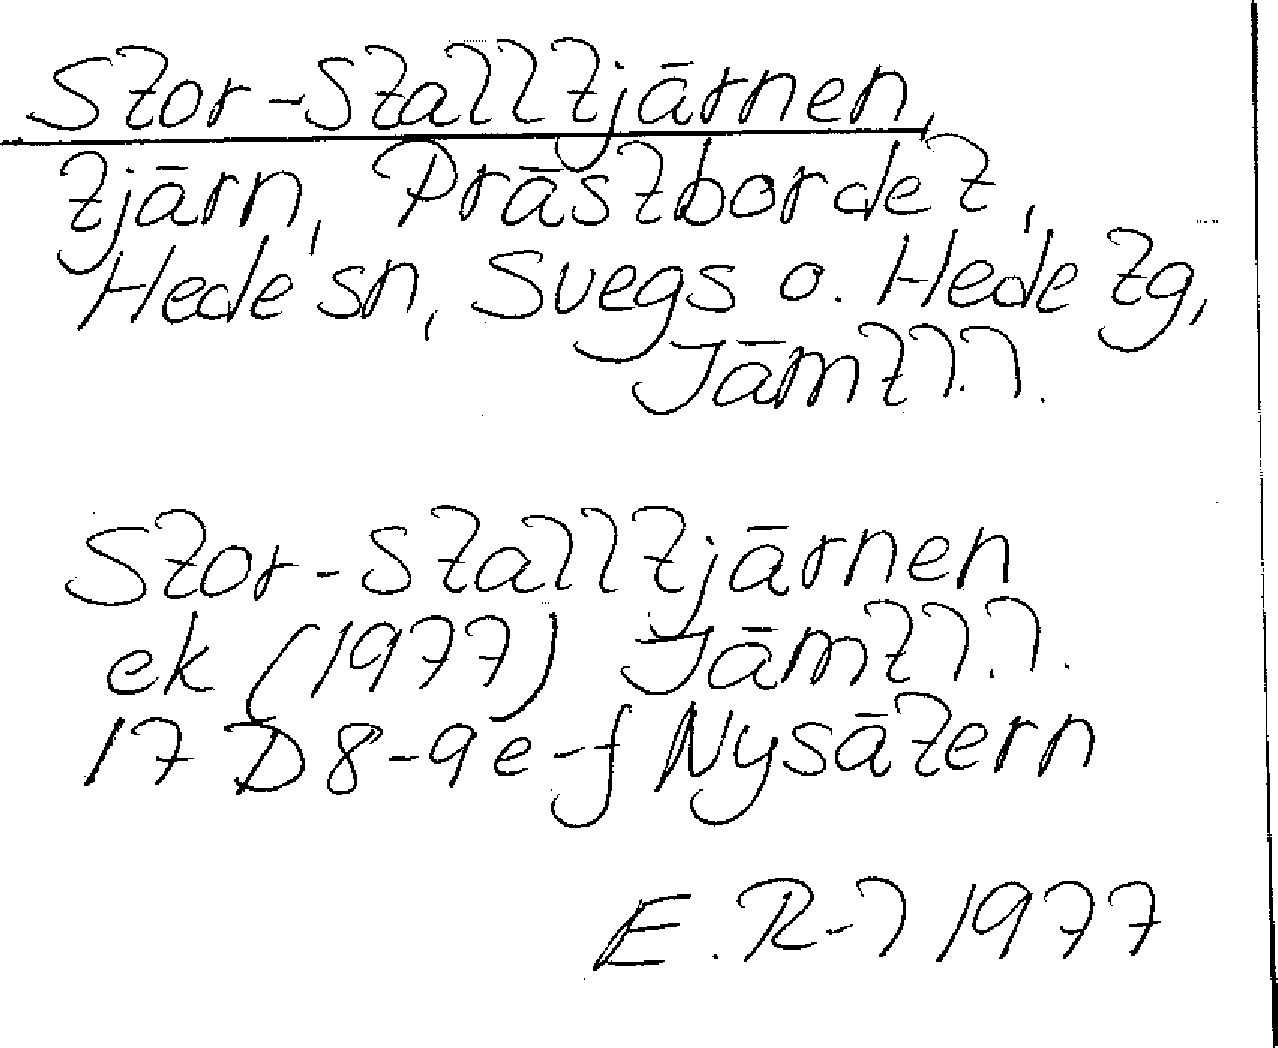 Stor-Stalltjärnen,
tjärn, Prästbordet,
Hede sn, Svegs o. Hede tg,
Jämtl.l.
Stor-Stalltjärnen
ek (1977) Jämtl.l.
17 D 8-9 e-f Nysätern
E. R-l 1977